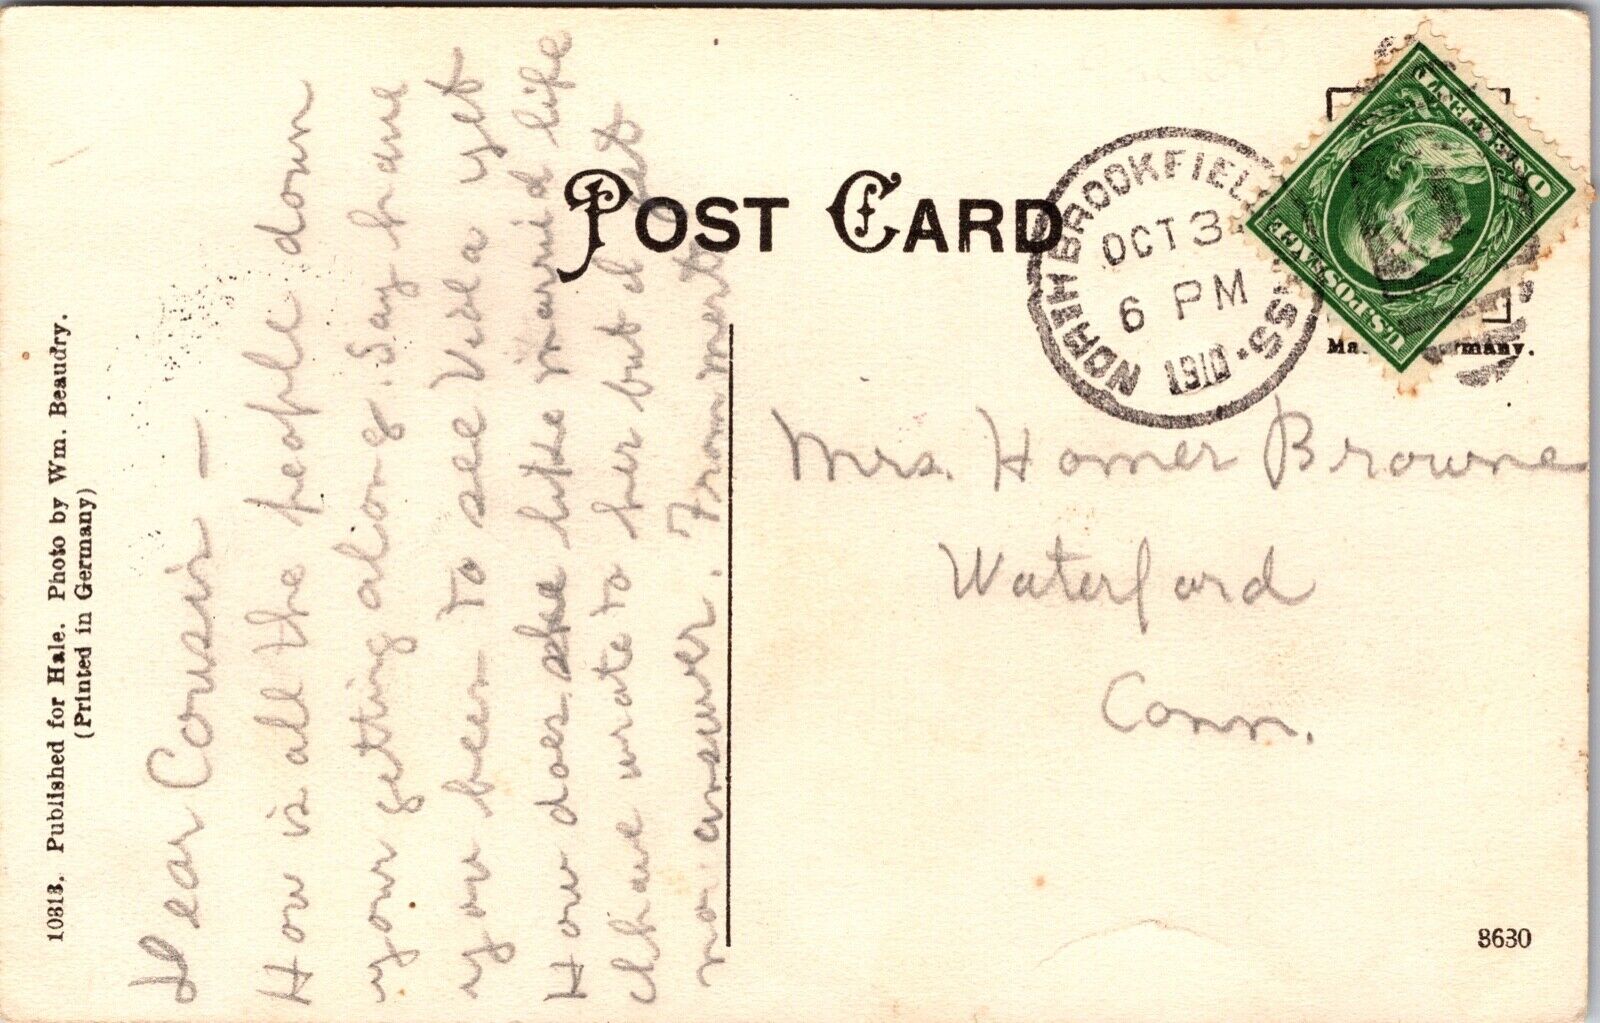 10818. Published for Hale. Photo by Wm. Beaudry.
(Printed in Germany)
POST CARD
NORTH BROOKFIEL
SS.
OCT 3
6 PM
1910
U.S. POSTAGE
ONE CENT
Ma rmany.
Dear Cousin –
How is all the people down
your getting along. Say have
you been to see Vida yet
How does she like marrid life
I have wrote to her but I get
no answer. From
Mrs. Homer Browne
Waterford
Conn.
8630